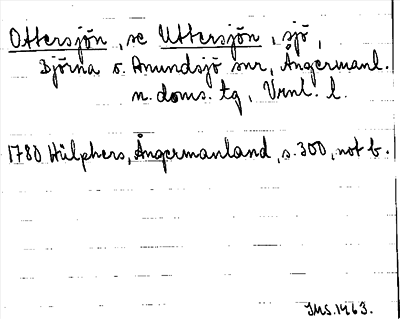 Ottersjön, se Uttersjön, sjö,
Björna o. Anundsjö snr, Ångermanl.
n. doms. tg, Vrnl. l.
1780 Hülphers, Ångermanland, s. 300, not b.
JMS.1463.